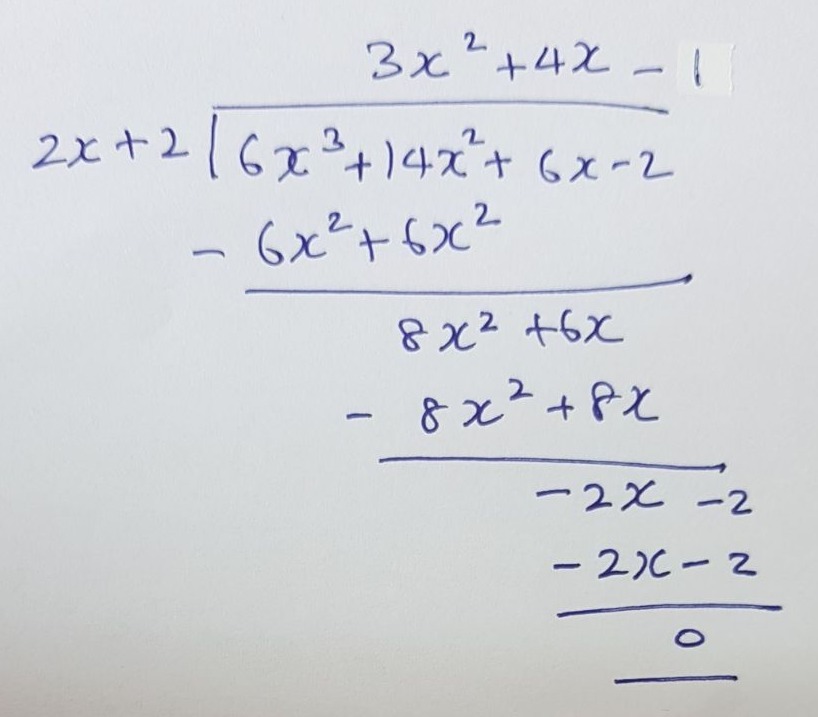 3x² + 4x - 1
2x + 2 6x³ + 14x² + 6x - 2
- 6x² + 6x²
8x² + 6x
- 8x² + 8x
- 2x - 2
- 2x - 2
0